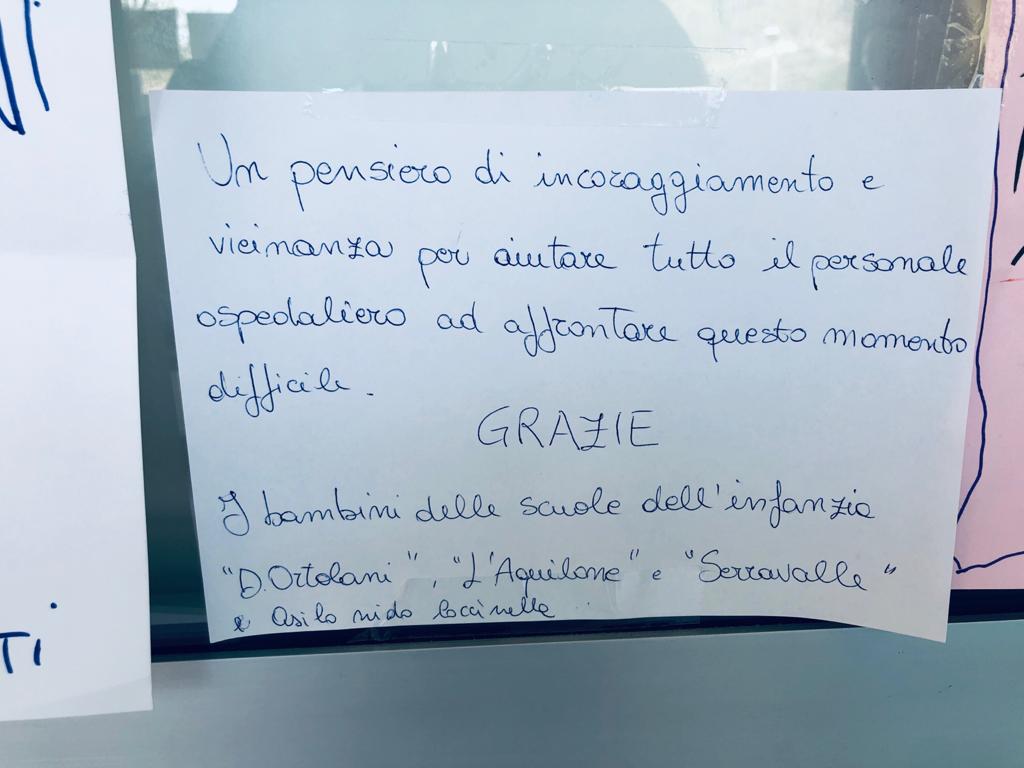 Un pensiero di incoraggiamento e
vicinanza per aiutare tutto il personale
ospedaliero ad affrontare questo momento
difficile.
GRAZIE
I bambini delle scuole dell'infanzia
"D. Ortolani", "L'Aquilone" e "Serravalle"
e Asilo nido coccinelle
TI